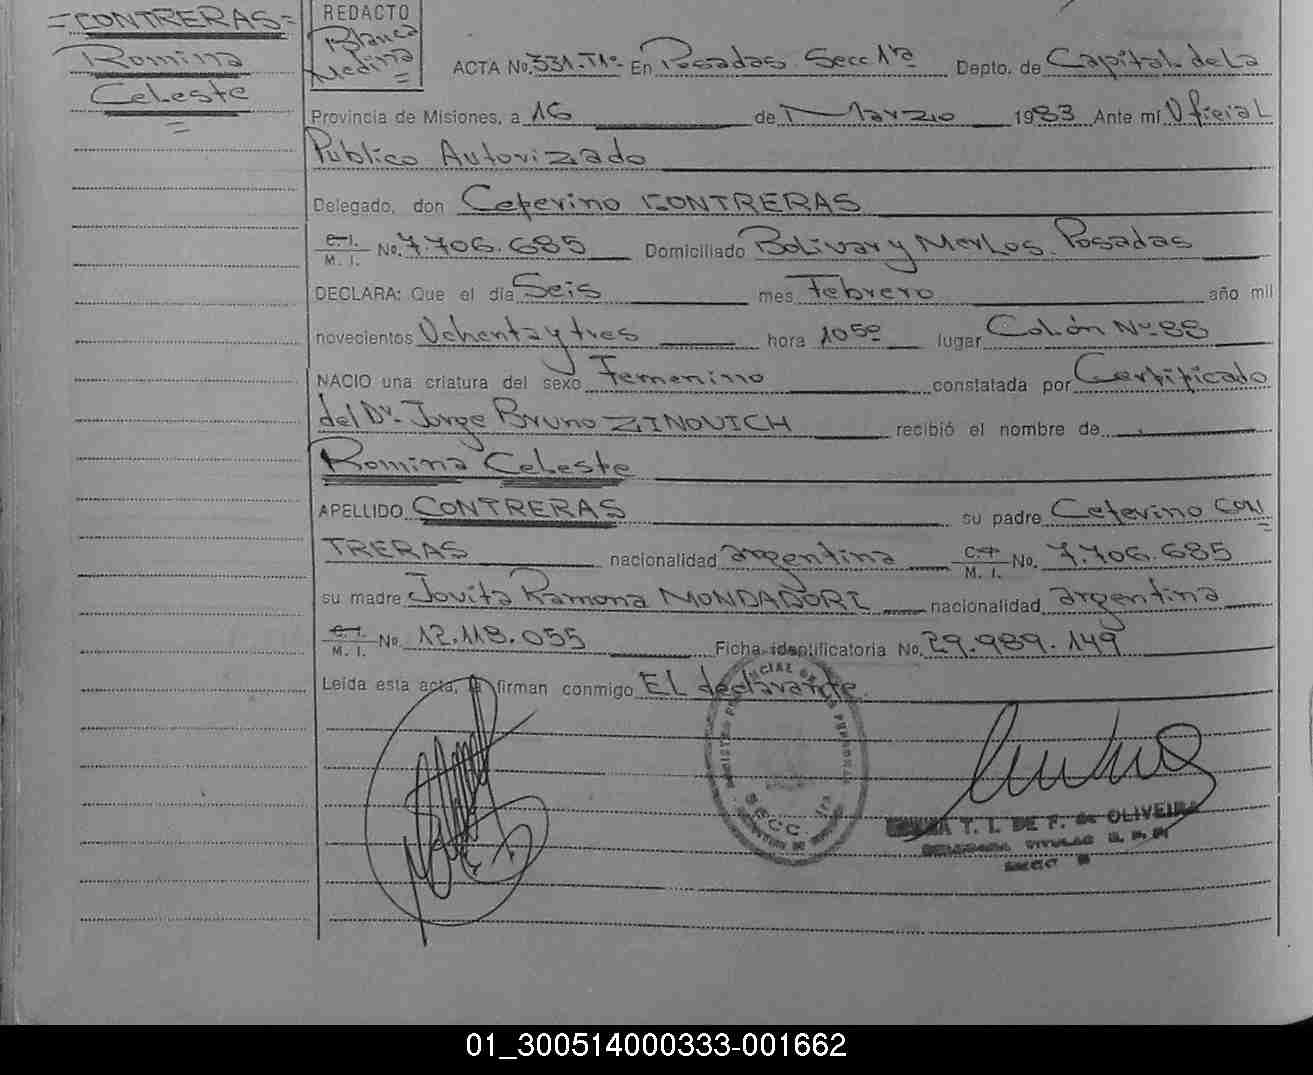 =CONTRERAS=
Romina
Celeste
=
REDACTO
Blanca
Medina
=
ACTA No. 331-T1º En Posadas Secc 1ª Depto. de Capital de La
Provincia de Misiones, a 16 de Marzo 1983 Ante mí Oficial
Público Autorizado
Delegado, don Ceferino CONTRERAS
C. I. M. I. No. 7.706.685 Domiciliado Bolivar y Merlos. Posadas
DECLARA: Que el día Seis mes Febrero año mil
novecientos Ochenta y tres hora 1050 lugar Colón Nº 88
NACIO una criatura del sexo Femenino constatada por Certificado
del Dr. Jorge Bruno ZINOVICH recibió el nombre de
Romina Celeste
APELLIDO CONTRERAS su padre Ceferino CON
TRERAS nacionalidad argentina C. I. M. I. No. 7.706.685
su madre Jovita Ramona MONDADORI nacionalidad argentina
C. I. M. I. No. 12.118.055 Ficha identificatoria No. 29.989.149
Leída esta acta, la firman conmigo El declarante.
SECC. 1ra
T. I. DE F. de OLIVEIRA
TITULAR
01_300514000333-001662